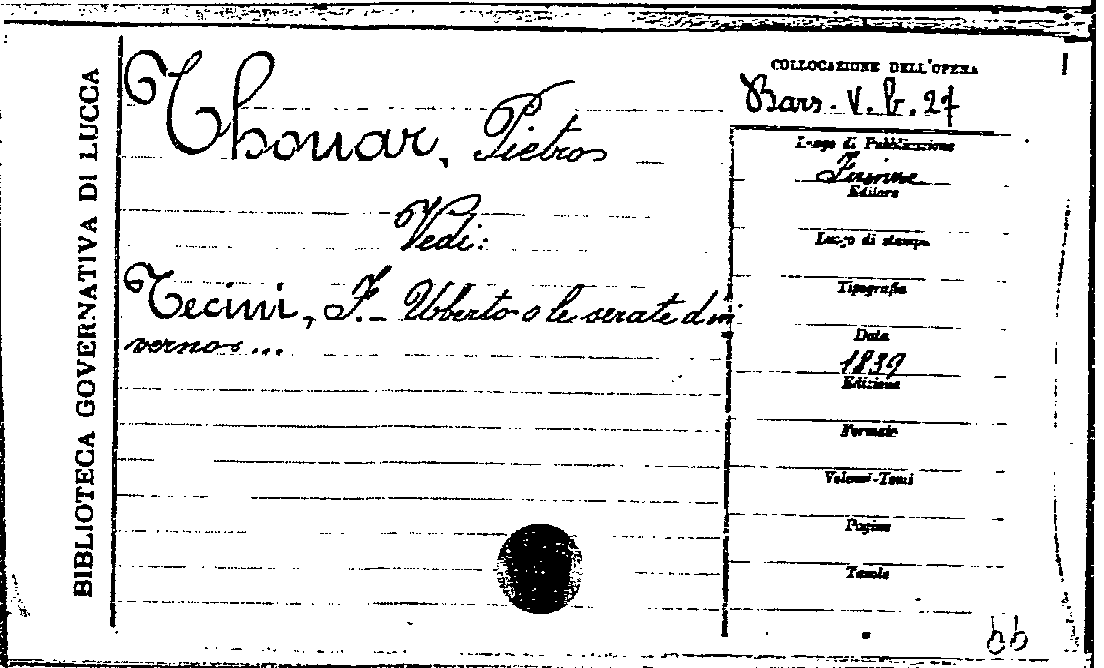 BIBLIOTECA GOVERNATIVA DI LUCCA
Thouar, Pietro
Vedi:
Tecini, F. - Ubberto o le serate d'in
verno ...
COLLOCAZIONE DELL'OPERA
Bars. V. b. 27
Luogo di Pubblicazione
Firenze
Editore
Luogo di stampa
Tipografia
Data
1839
Edizione
Formato
Volumi-Tomi
Pagine
Tavole